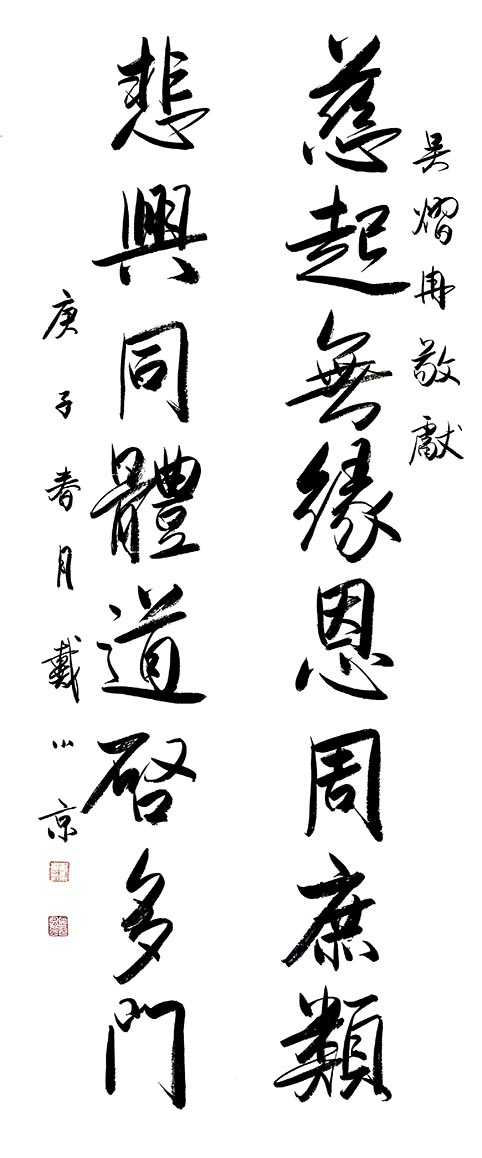 吴熠冉敬獻
慈起無緣恩周庶類
悲興同體道啓多門
庚子春月戴小京